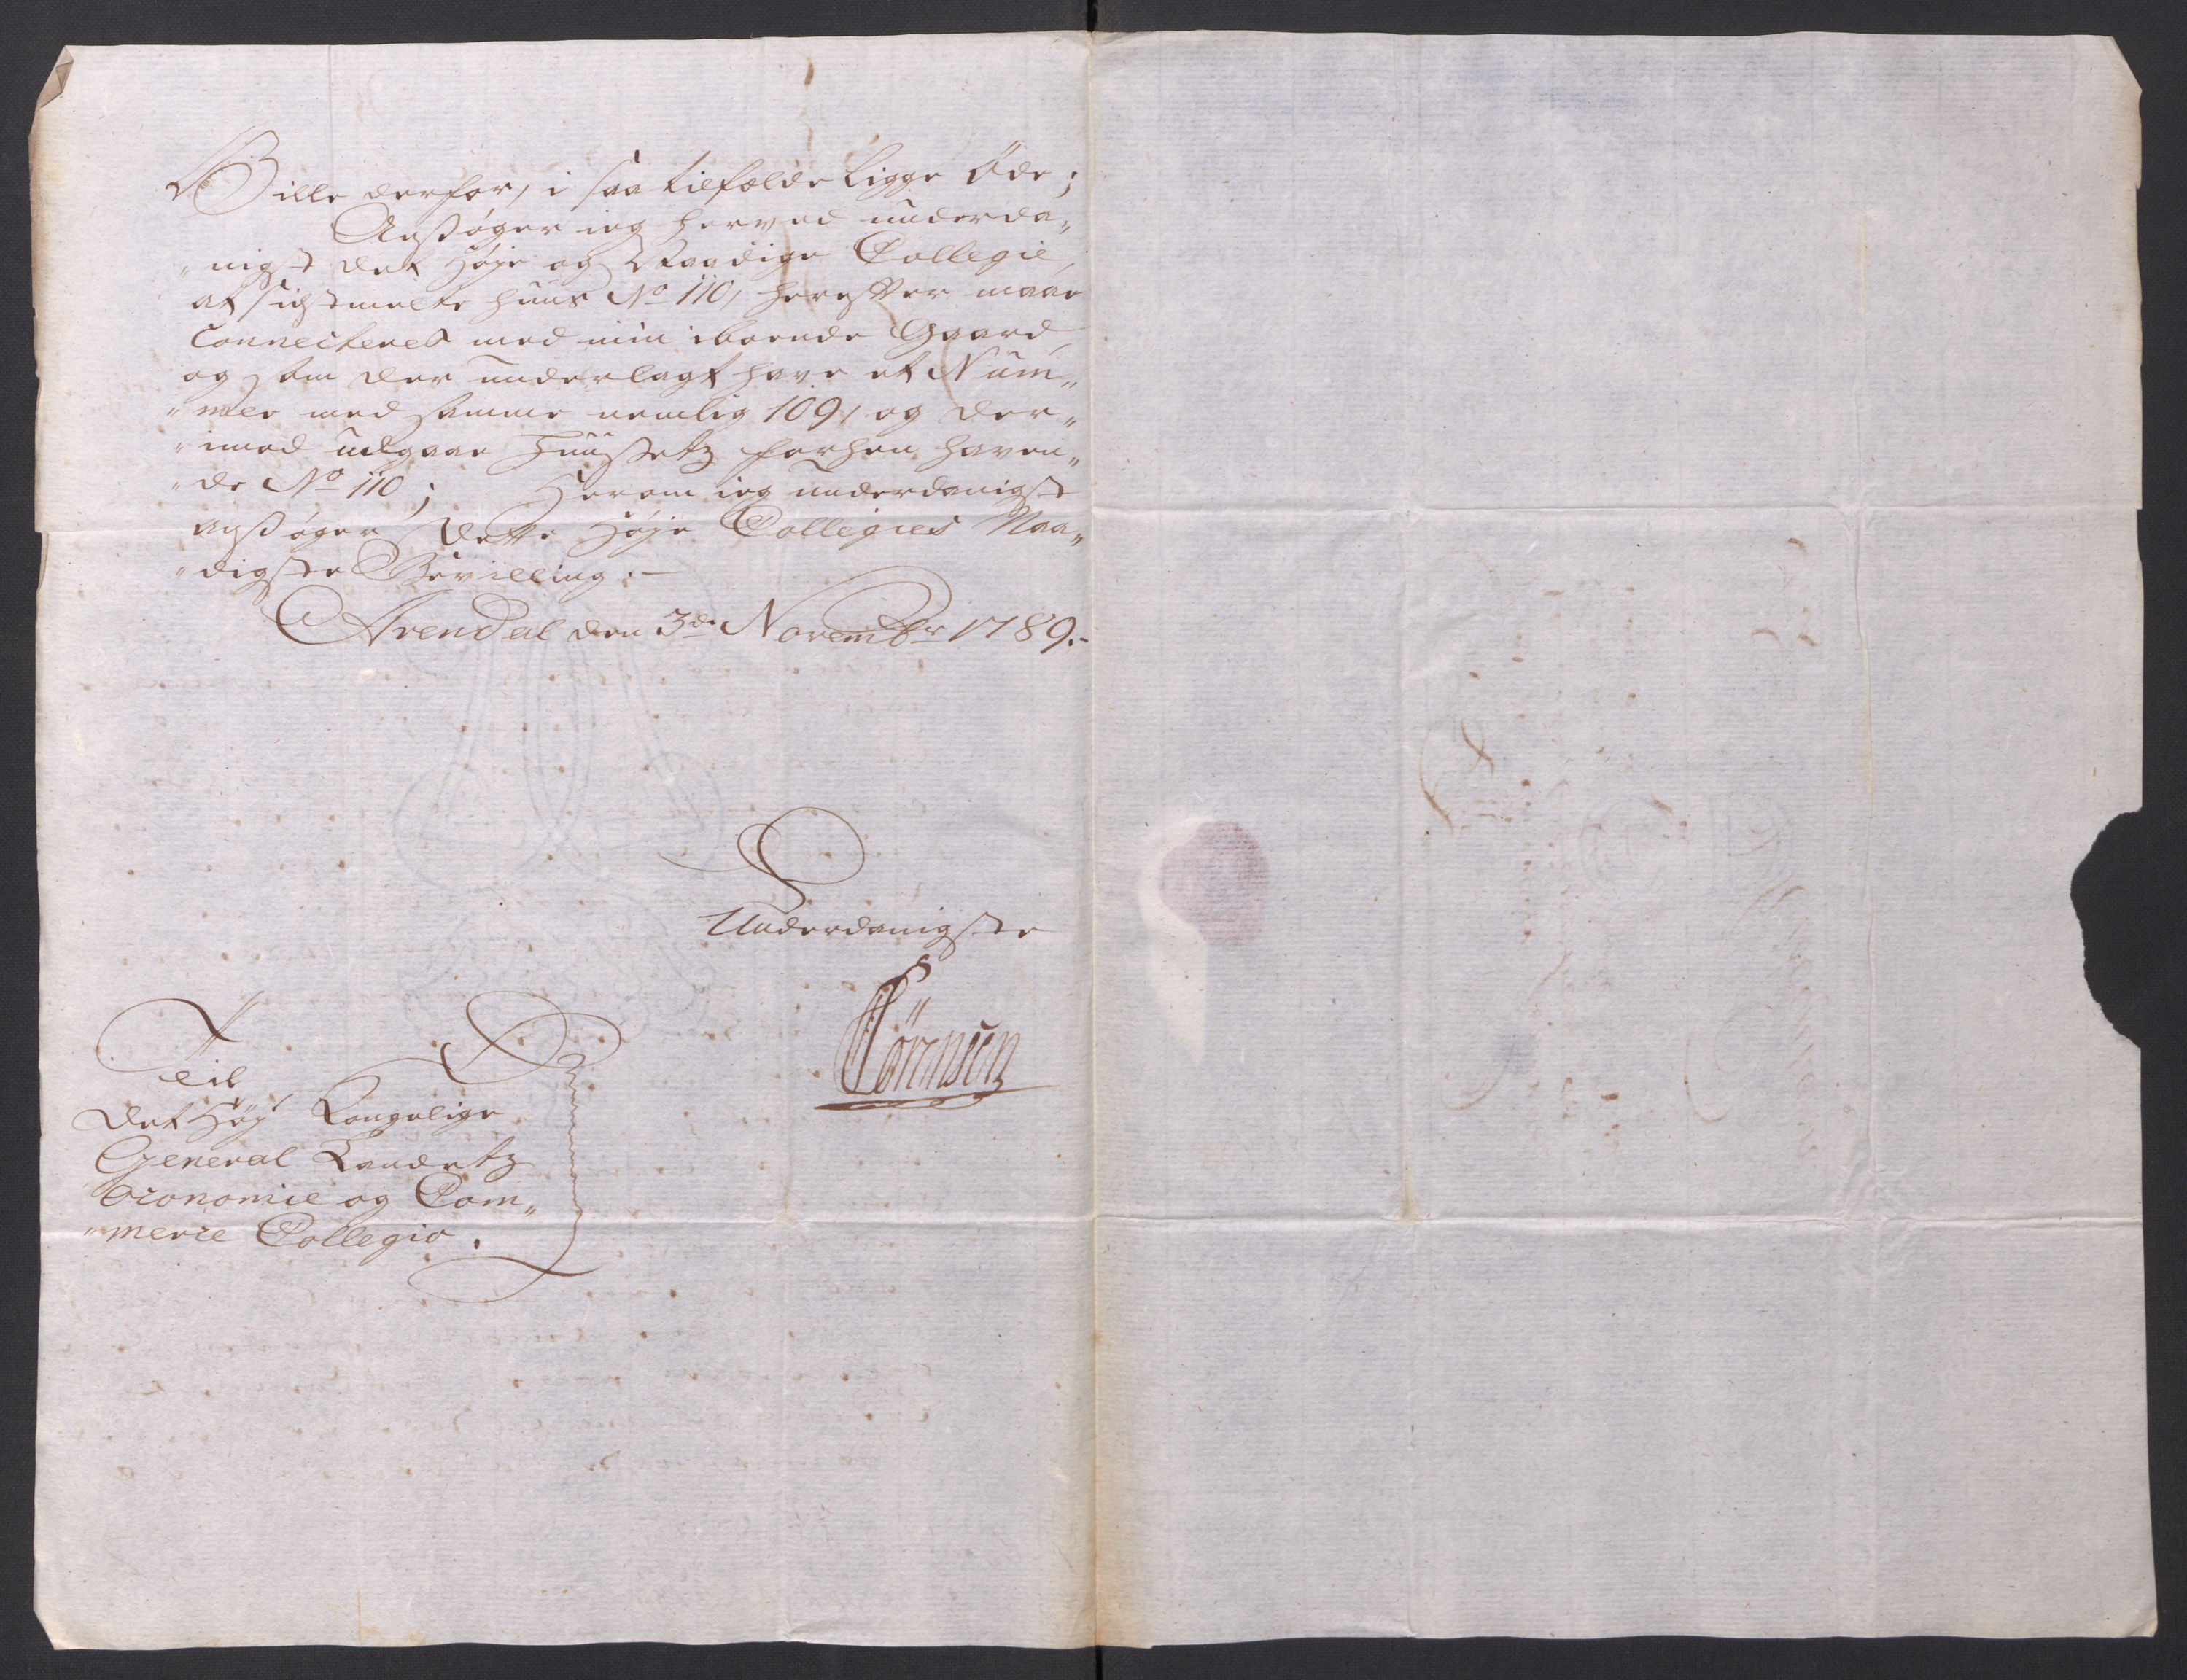 Ville derfor, i saa tilfælde ligge Öde;
Ansøger ieg herved underda„
„nigst det Høje og Naadige Collegie,
at sidstmelte huus No 110, herefter maae
Connecteres med min iboende Gaard,
og som der underlagt have et Num„
„mer med samme nemlig 109, og der„
„imod udgaae Huusetz forhen haven„
„de No 110; Herom ieg underdanigst
ansøger dette Høje Collegies Naa„
„digste Bevilling.
Arendal den 3de Novembr 1789.
Underdanigste
Sörensen
Til
Det Høj Kongelige
General Landetz
Oeconomie og Com„
„merce Collegio.